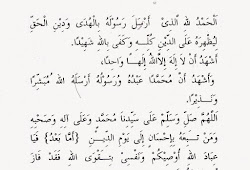 اَلْحَمْدُ لله الَّذِىْ أَرْسَلَ رَسُوْلَهُ بِالْهُدَى وَدِيْنِ الْحَقِّ
لِيُظْهِرَهُ عَلَى الدِّيْنِ كُلِّهِ وَكَفَى بِاللهِ شَهِيْدًا.
أَشْهَدُ أَنْ لاَ إِلَهَ إِلاَّ اللهُ إِلَهًا وَاحِدًا.
وَأَشْهَدُ أَنَّ مُحَمَّدًا عَبْدُهُ وَرَسُوْلُهُ أَرْسَلَهُ الله مُبَشِّرًا
وَنَذِيْرًا.
اَللَّهُمَّ صَلِّ وَسَلِّمْ عَلَى سَيِّدِنَا مُحَمَّدٍ وَعَلَى آلِهِ وَصَحْبِهِ
وَمَنْ تَبِعَهُ بِإِحْسَانٍ إِلَى يَوْمِ الدِّيْنِ (أَمَّا بَعْدُ) فَيَا
عِبَادَ الله أُوْصِيْكُمْ وَنَفْسِى بِتَقْوَى الله فَقَدْ فَازَ